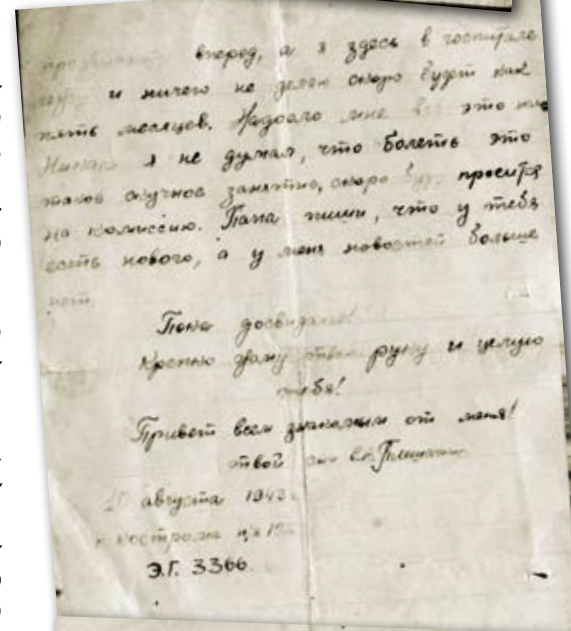 вперед, а я здесь в госпитале
и ничего не делаю скоро будет как
пять месяцев. Надоело мне все это
я не думал, что болеть это
такое скучное занятие, скоро буду проситься
на комиссию. Папа пиши, что у тебя
есть нового, а у меня новостей больше
нет.
Пока досвидания!
Крепко жму твою руку и целую
тебя!
Привет всем знакомым от меня!
твой сын
10 августа 1943
г. Кострома п/я
Э.Г. 3366